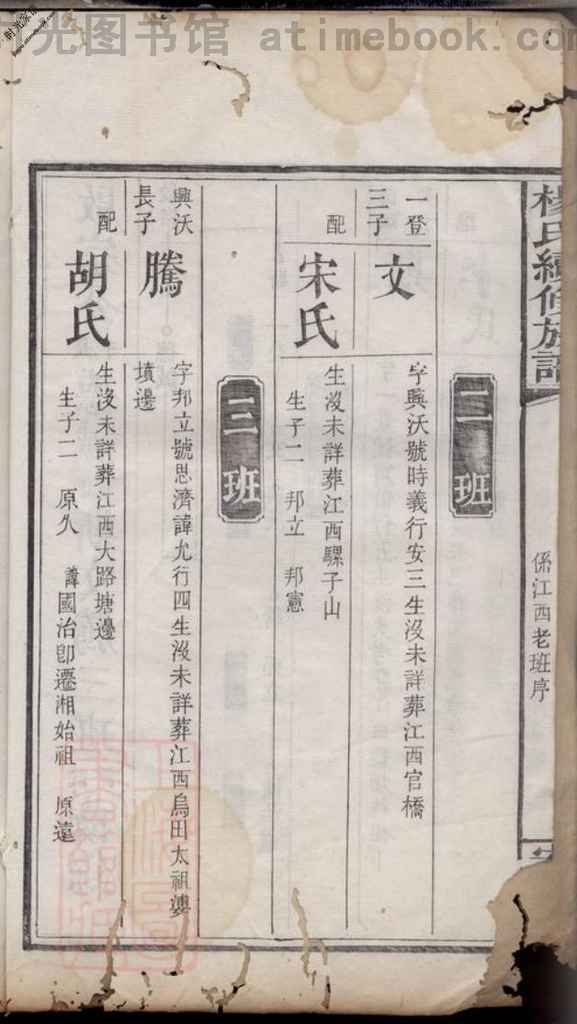 时光图书馆 atimebook.com
楊氏續修族譜
係江西老班序
二班
一登三子
文
字興沃號時義行安三生沒未詳葬江西官橋
配
宋氏
生沒未詳葬江西騾子山
生子二 邦立 邦憲
三班
興沃長子
騰
字邦立號思濟諱允行四生沒未詳葬江西烏田太祖婆
墳邊
配
胡氏
生沒未詳葬江西大路塘邊
生子二 原久 諱國治卽遷湘始祖 原遠